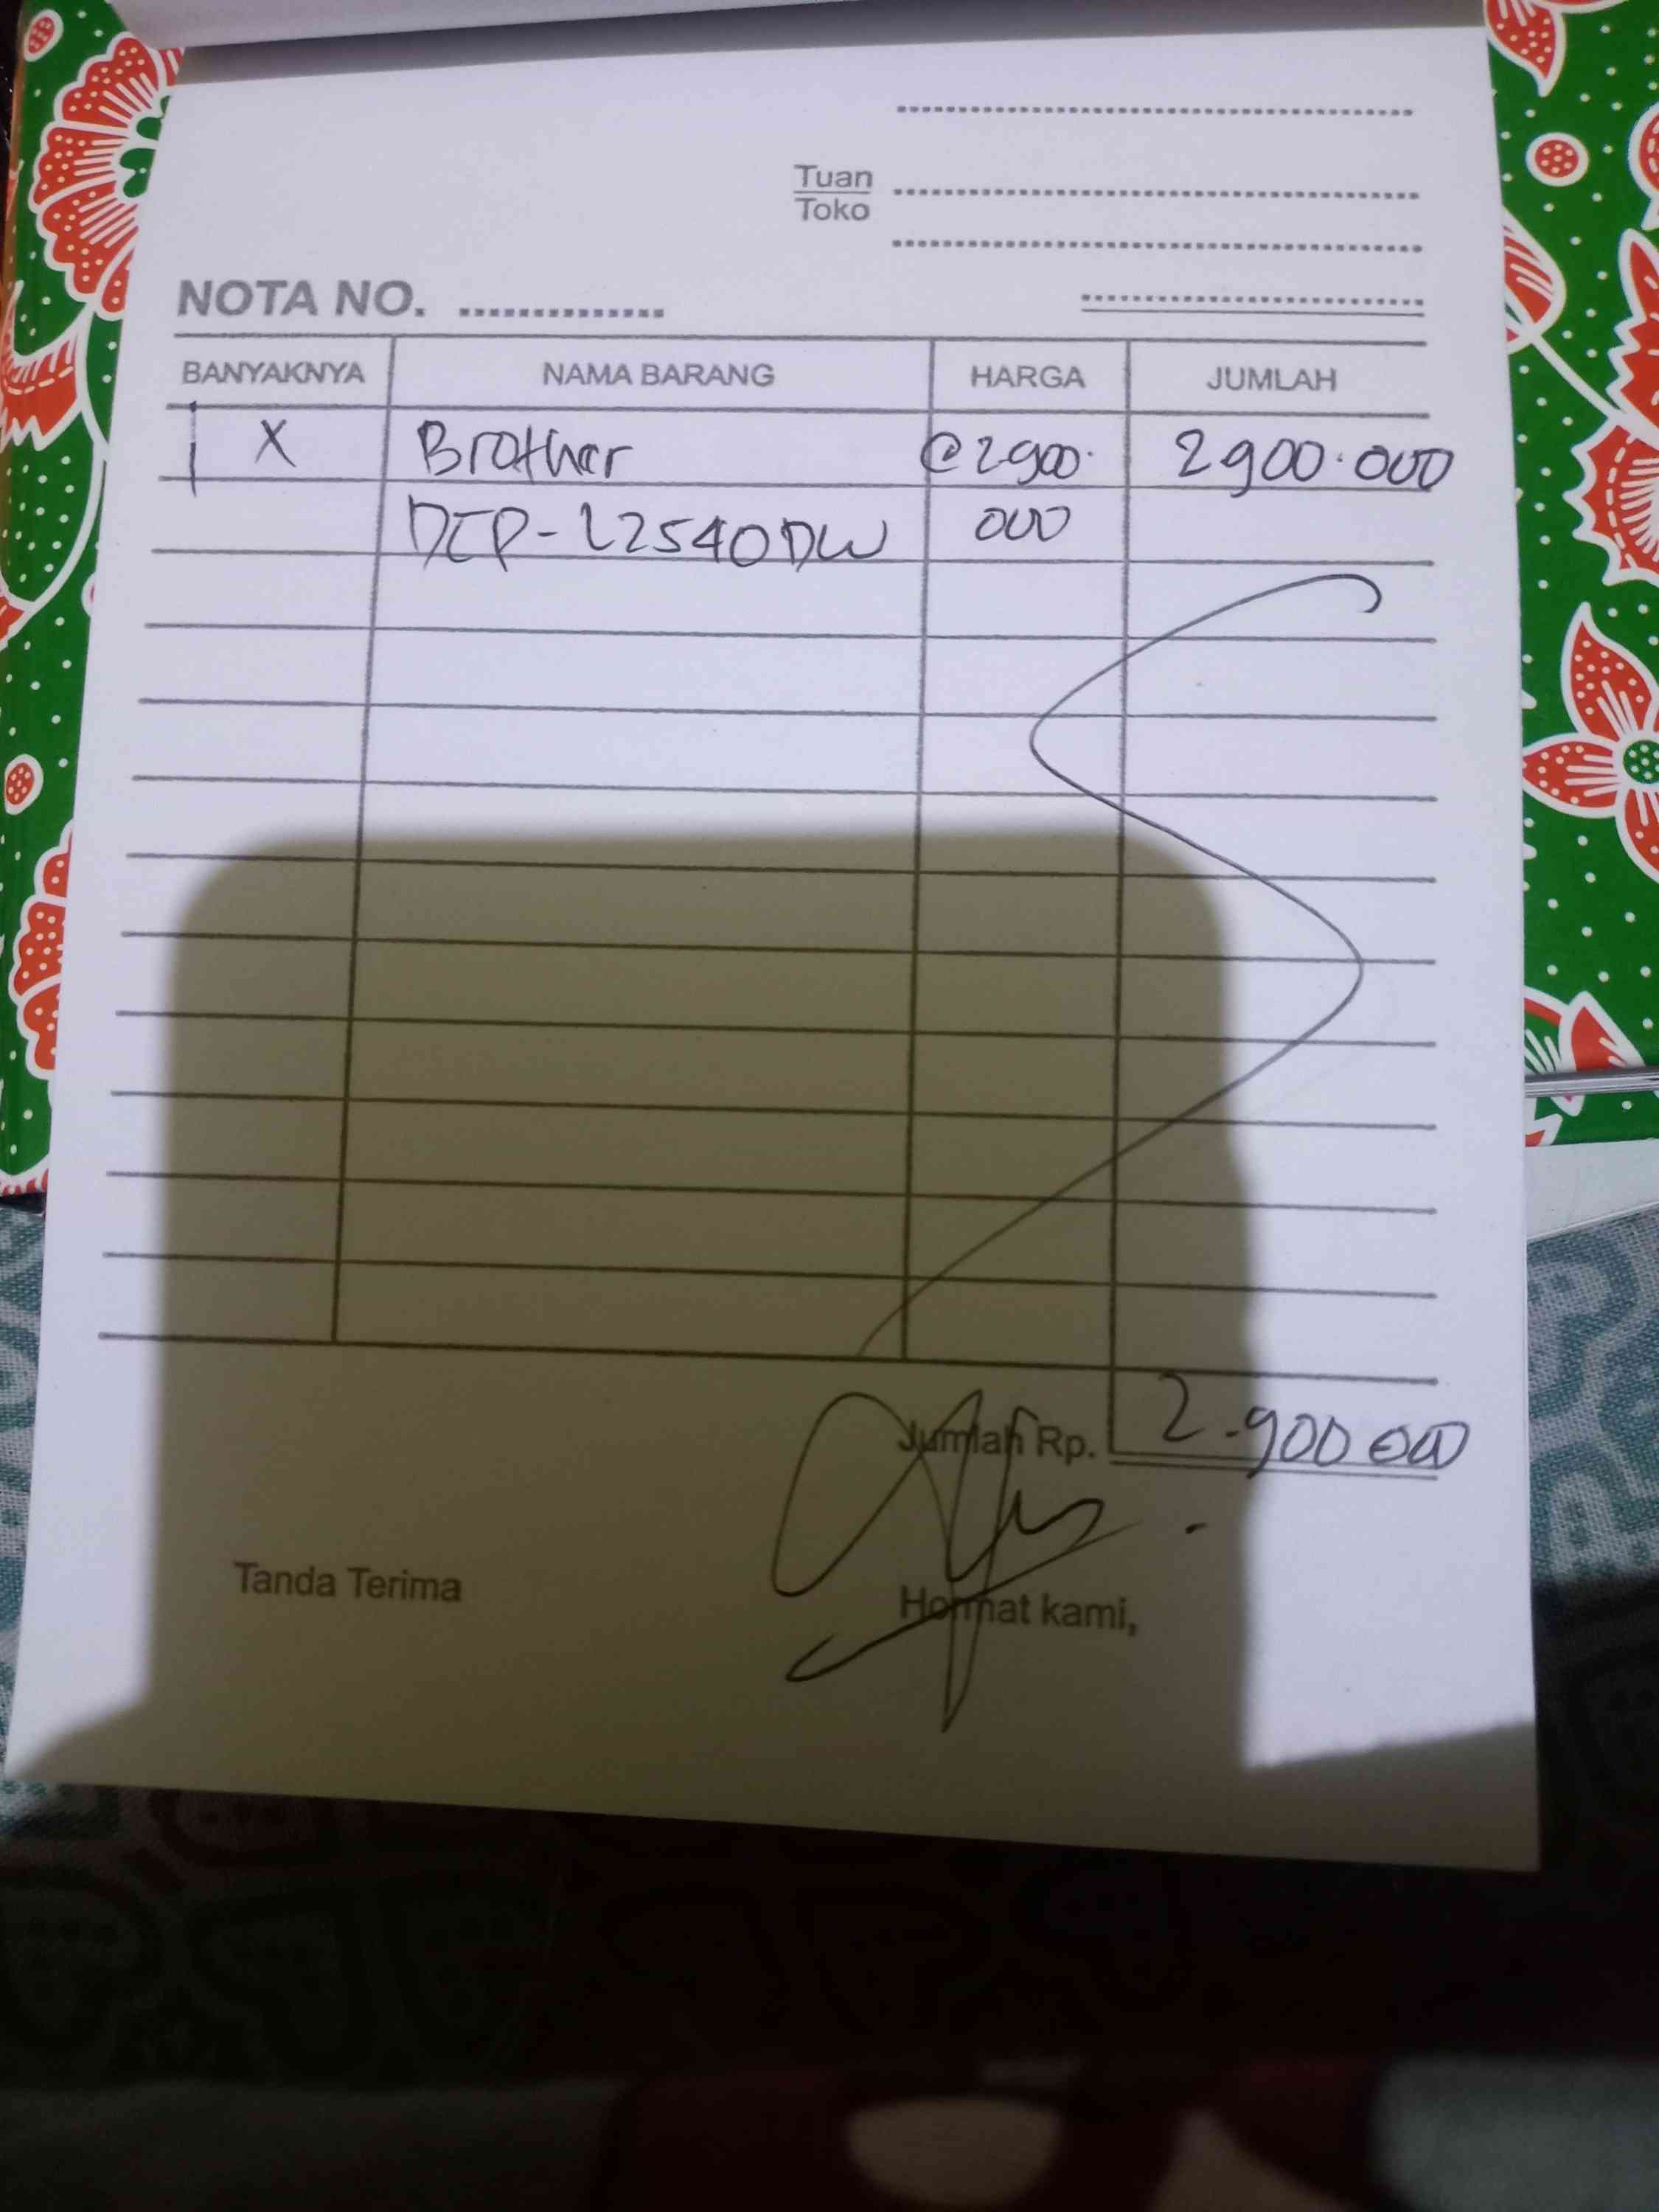 Tuan
Toko
NOTA NO.
BANYAKNYA NAMA BARANG HARGA JUMLAH
1 X Brother @2900. 2900.000
DCP-L2540DW 000
Jumlah Rp. 2.900 000
Tanda Terima Hormat kami,